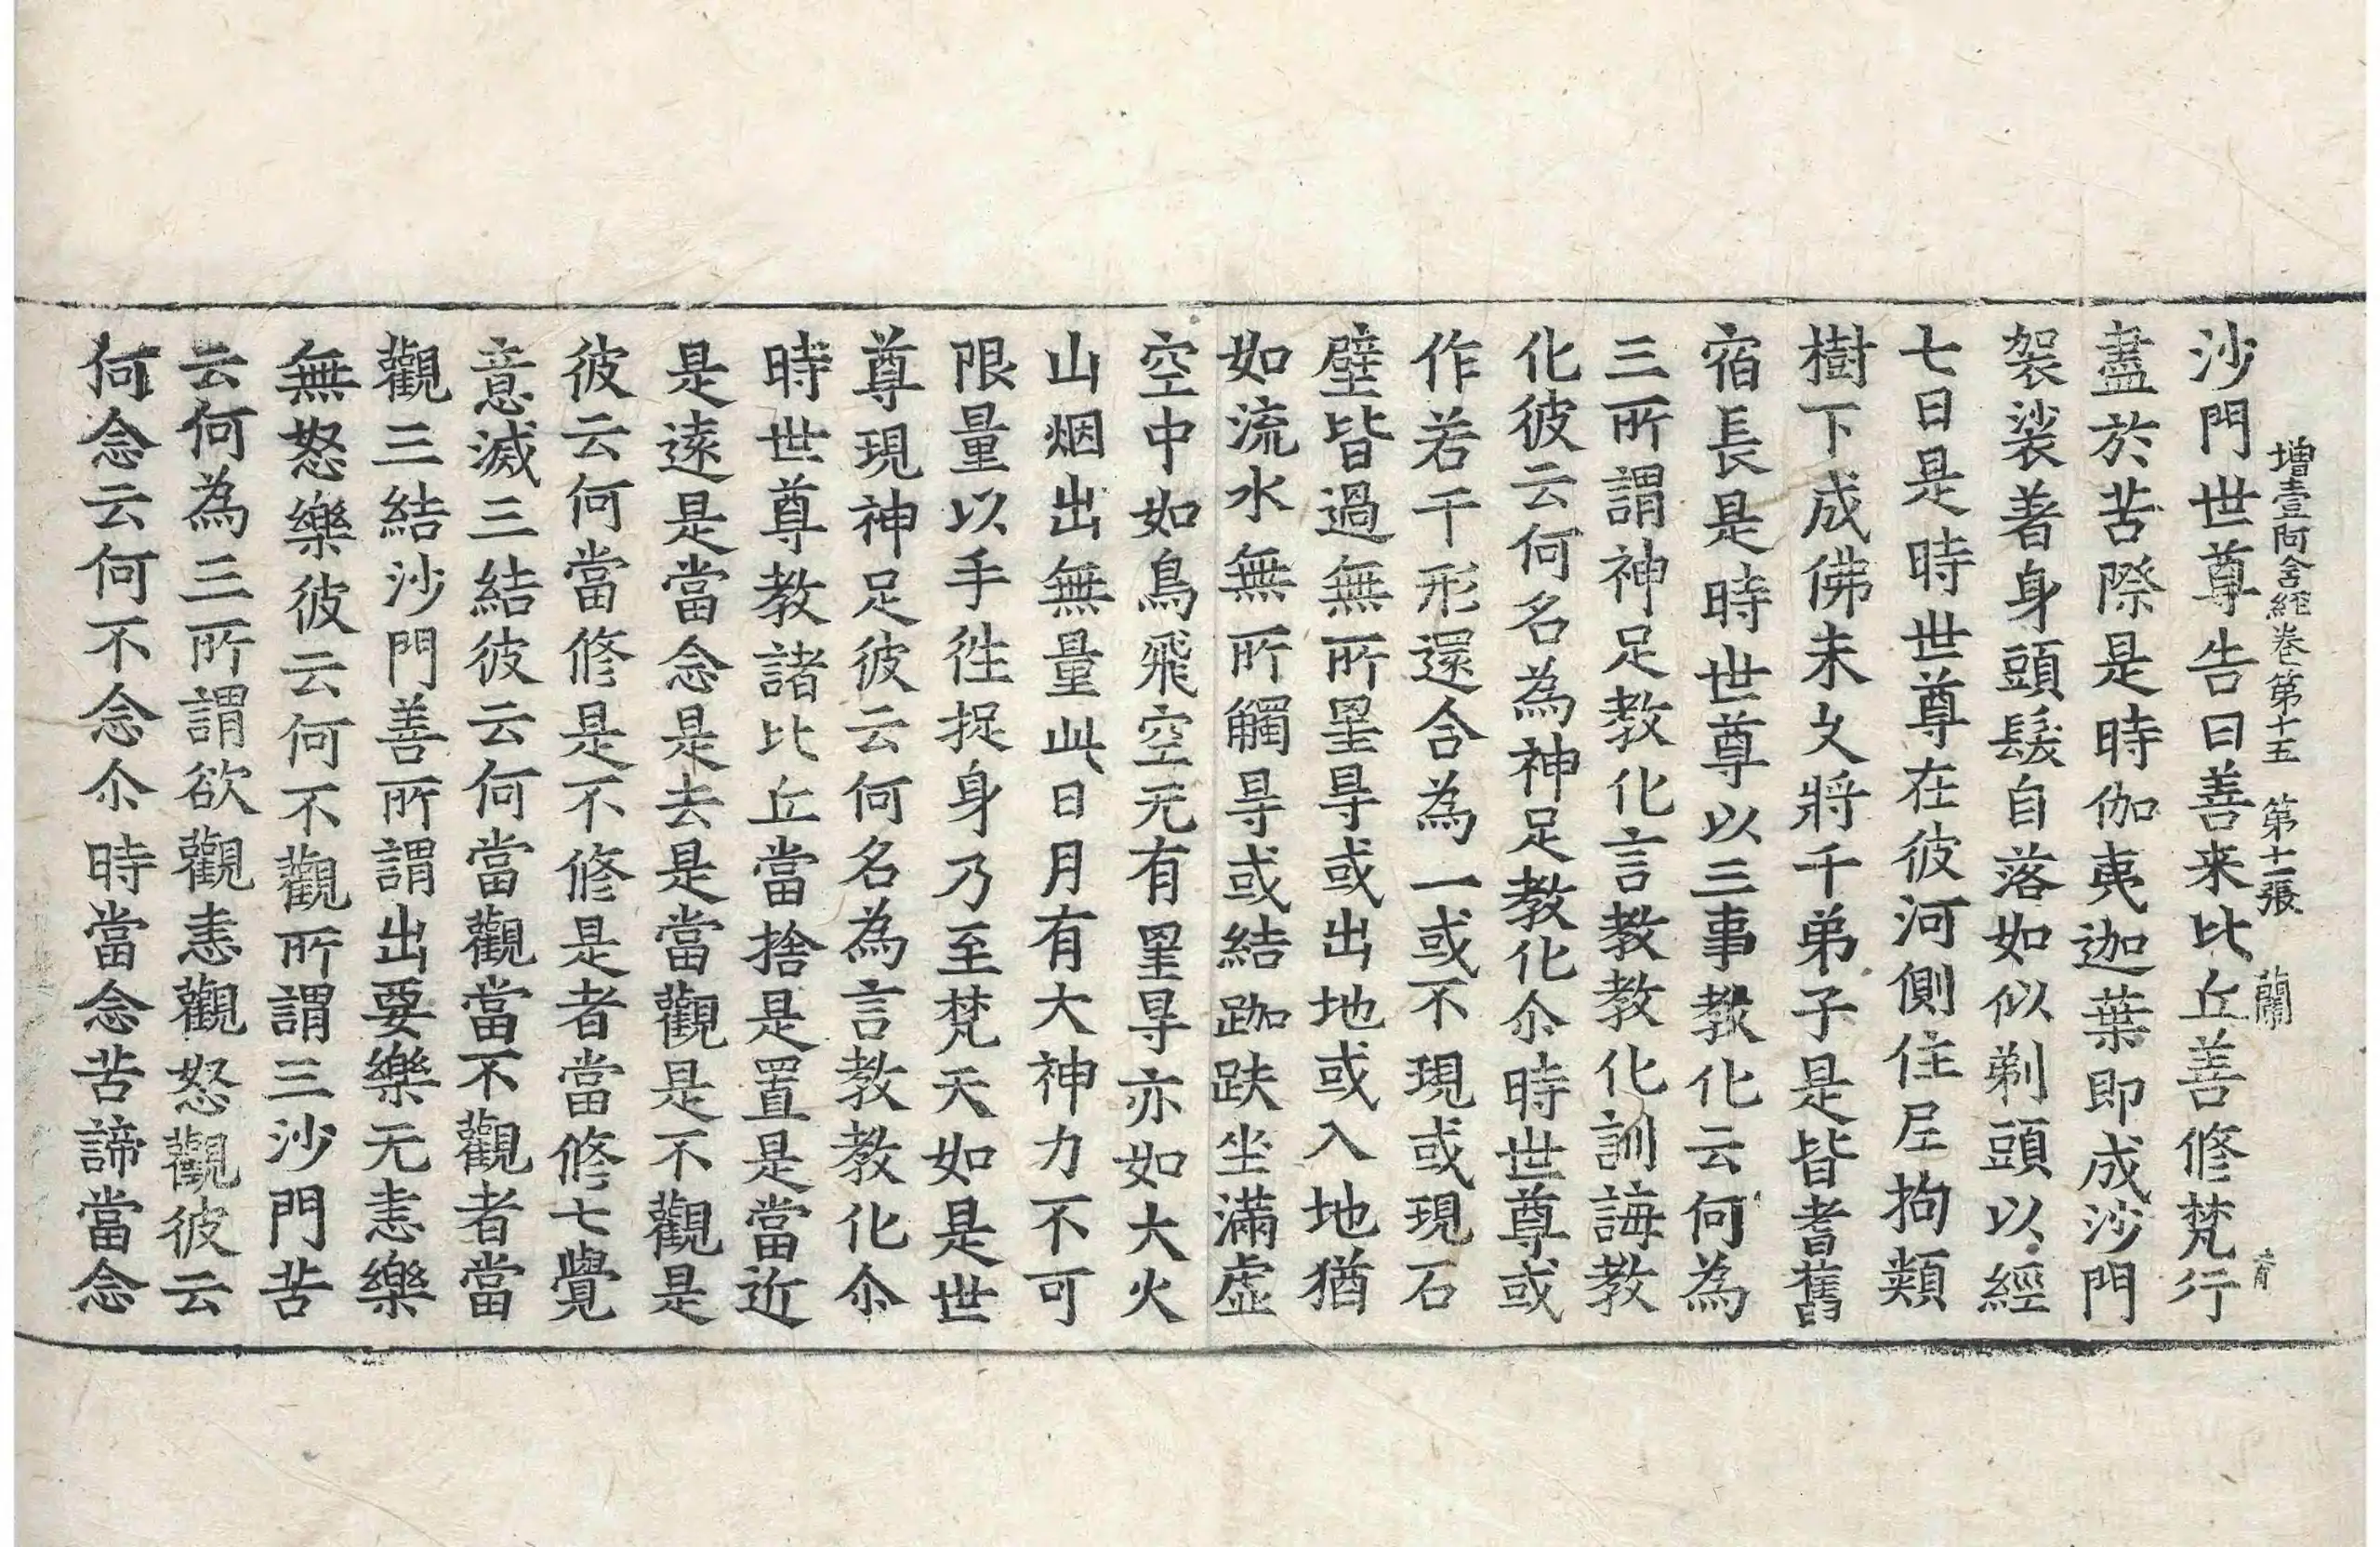 增壹阿含經卷第十五 第十二張 蘭
沙門世尊告曰善来比丘善修梵行
盡於苦際是時伽夷迦葉即成沙門
袈裟著身頭髮自落如似剃頭以經
七日是時世尊在彼河側住尼拘類
樹下成佛未久將千弟子是皆耆舊
宿長是時世尊以三事教化云何為
三所謂神足教化言教教化訓誨教
化彼云何名為神足教化尒時世尊或
作若干形還合為一或不現或現石
壁皆過無所罣㝵或出地或入地猶
如流水無所觸㝵或結跏趺坐滿虛
空中如鳥飛空无有罣㝵亦如大火
山烟出無量此日月有大神力不可
限量以手徃捉身乃至梵天如是世
尊現神足彼云何名為言教教化尒
時世尊教諸比丘當捨是置是當近
是遠是當念是去是當觀是不觀是
彼云何當修是不修是者當修七覺
意滅三結彼云何當觀當不觀者當
觀三結沙門善所謂出要樂无恚樂
無怒樂彼云何不觀所謂三沙門苦
云何為三所謂欲觀恚觀怒觀彼云
何念云何不念尒時當念苦諦當念